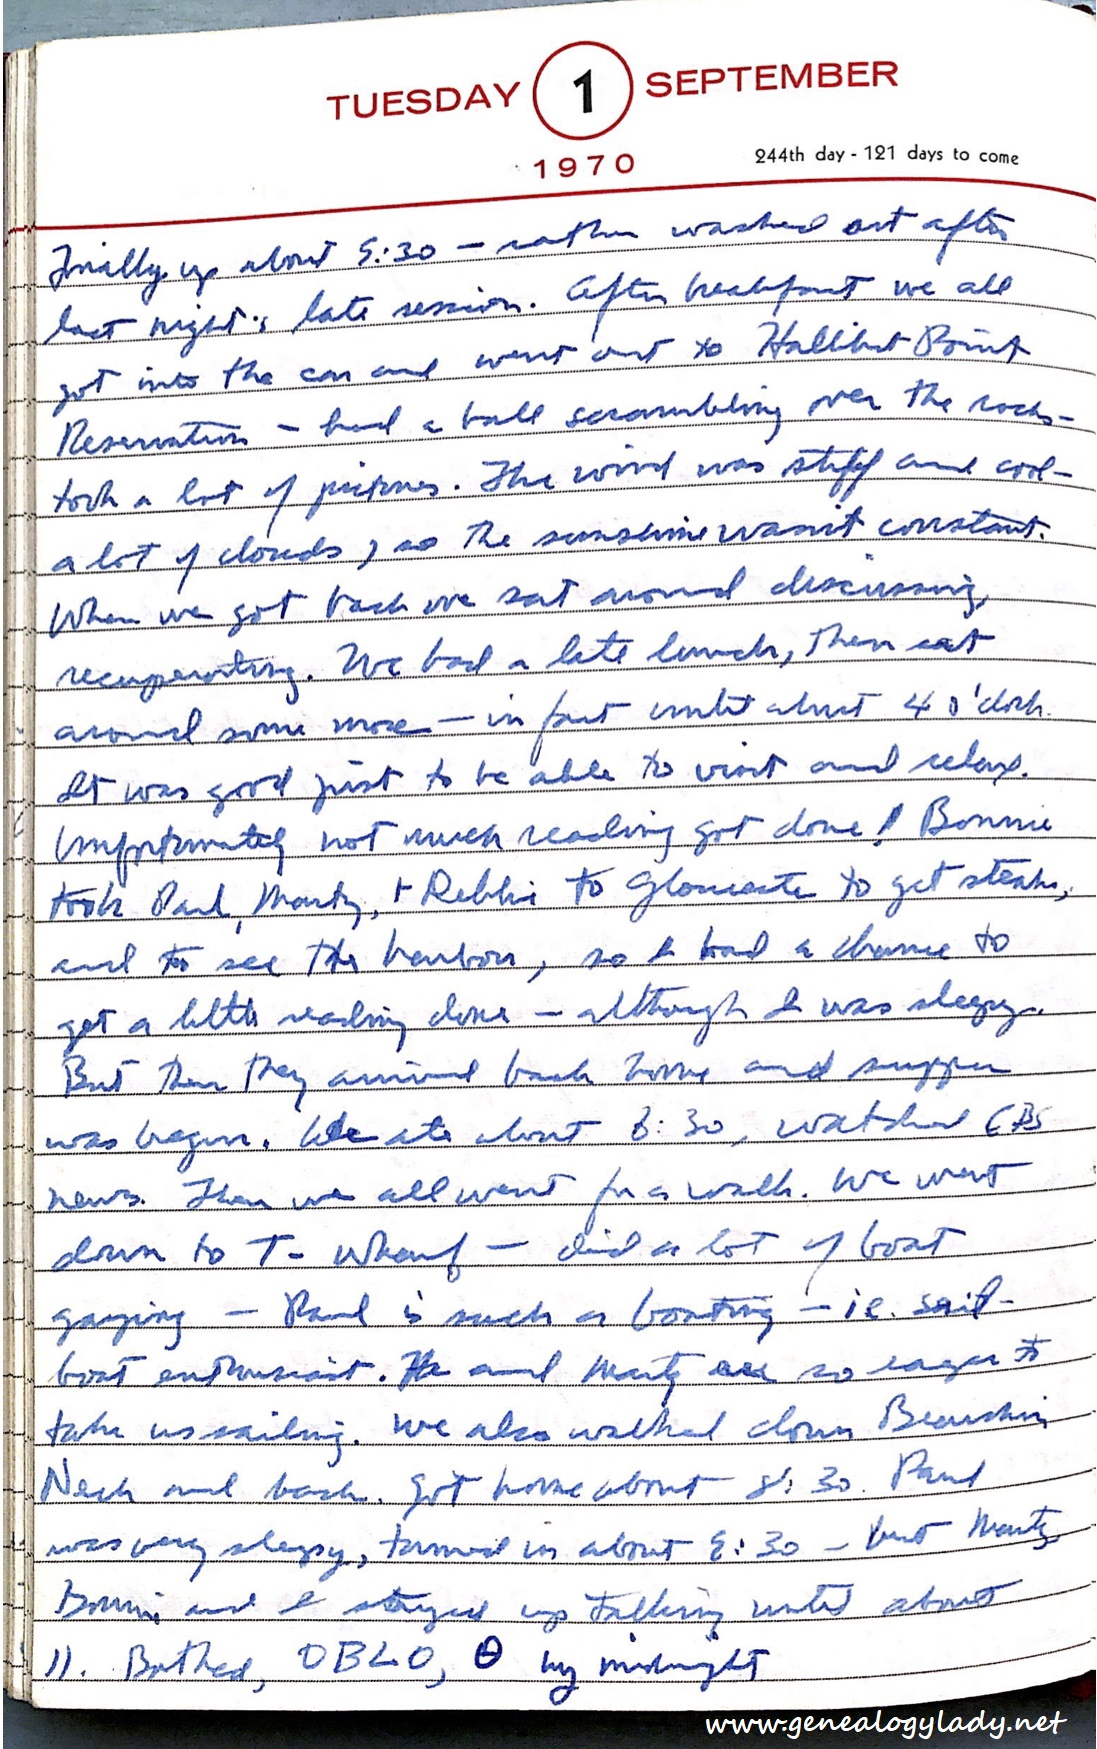 TUESDAY 1 SEPTEMBER
1970
244th day - 121 days to come
Finally up about 9:30 — rather washed out after
last night's late session. After breakfast we all
got into the car and went out to Hallibut Point
Reservation — had a ball scrambling over the rocks —
took a lot of pictures. The wind was stiff and cool —
a lot of clouds, so the sunshine wasn't constant.
When we got back we sat around discussing,
recuperating. We had a late lunch, then sat
around some more — in fact until about 4 o'clock.
It was good just to be able to visit and relax.
Unfortunately not much reading got done! Bonnie
took Paul, Marty, + Debbie to Gloucester to get steaks,
and to see the harbor, so I had a chance to
get a little reading done — although I was sleepy.
But then they arrived back home and supper
was begun. We ate about 6:30, watched CBS
news. Then we all went for a walk. We went
down to T- Wharf — did a lot of boat
gazing — Paul is such a boating — i.e. sail-
boat enthusiast. He and Marty are so eager to
take us sailing. We also walked down Bearskin
Neck and back. Got home about 8:30. Paul
was very sleepy, turned in about 9:30 — but Marty
Bonnie and I stayed up talking until about
11. Bathed, OBLO, by midnight
www.genealogylady.net